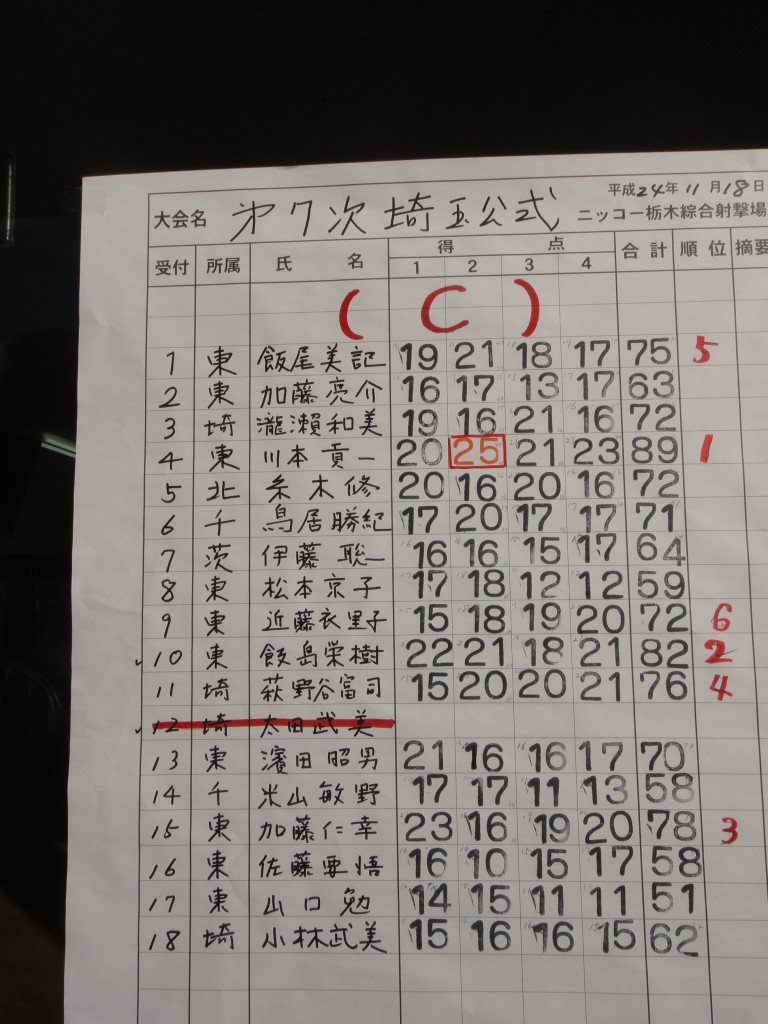 平成24年11月18日
大会名 第7次埼玉公式 ニッコー栃木綜合射撃場
受付 所属 氏名 得点 合計 順位 摘要
1 2 3 4
(C)
1 東 飯尾美記 19 21 18 17 75 5
2 東 加藤亮介 16 17 13 17 63
3 埼 瀧瀬和美 19 16 21 16 72
4 東 川本貢一 20 25 21 23 89 1
5 北 条木修 20 16 20 16 72
6 千 鳥居勝紀 17 20 17 17 71
7 茨 伊藤聡一 16 16 15 17 64
8 東 松本京子 17 18 12 12 59
9 東 近藤衣里子 15 18 19 20 72 6
10 東 飯島栄樹 22 21 18 21 82 2
11 埼 萩野谷富司 15 20 20 21 76 4
12 埼 太田武美
13 東 濱田昭男 21 16 16 17 70
14 千 米山敏野 17 17 11 13 58
15 東 加藤仁幸 23 16 19 20 78 3
16 東 佐藤要悟 16 10 15 17 58
17 東 山口勉 14 15 11 11 51
18 埼 小林武美 15 16 16 15 62